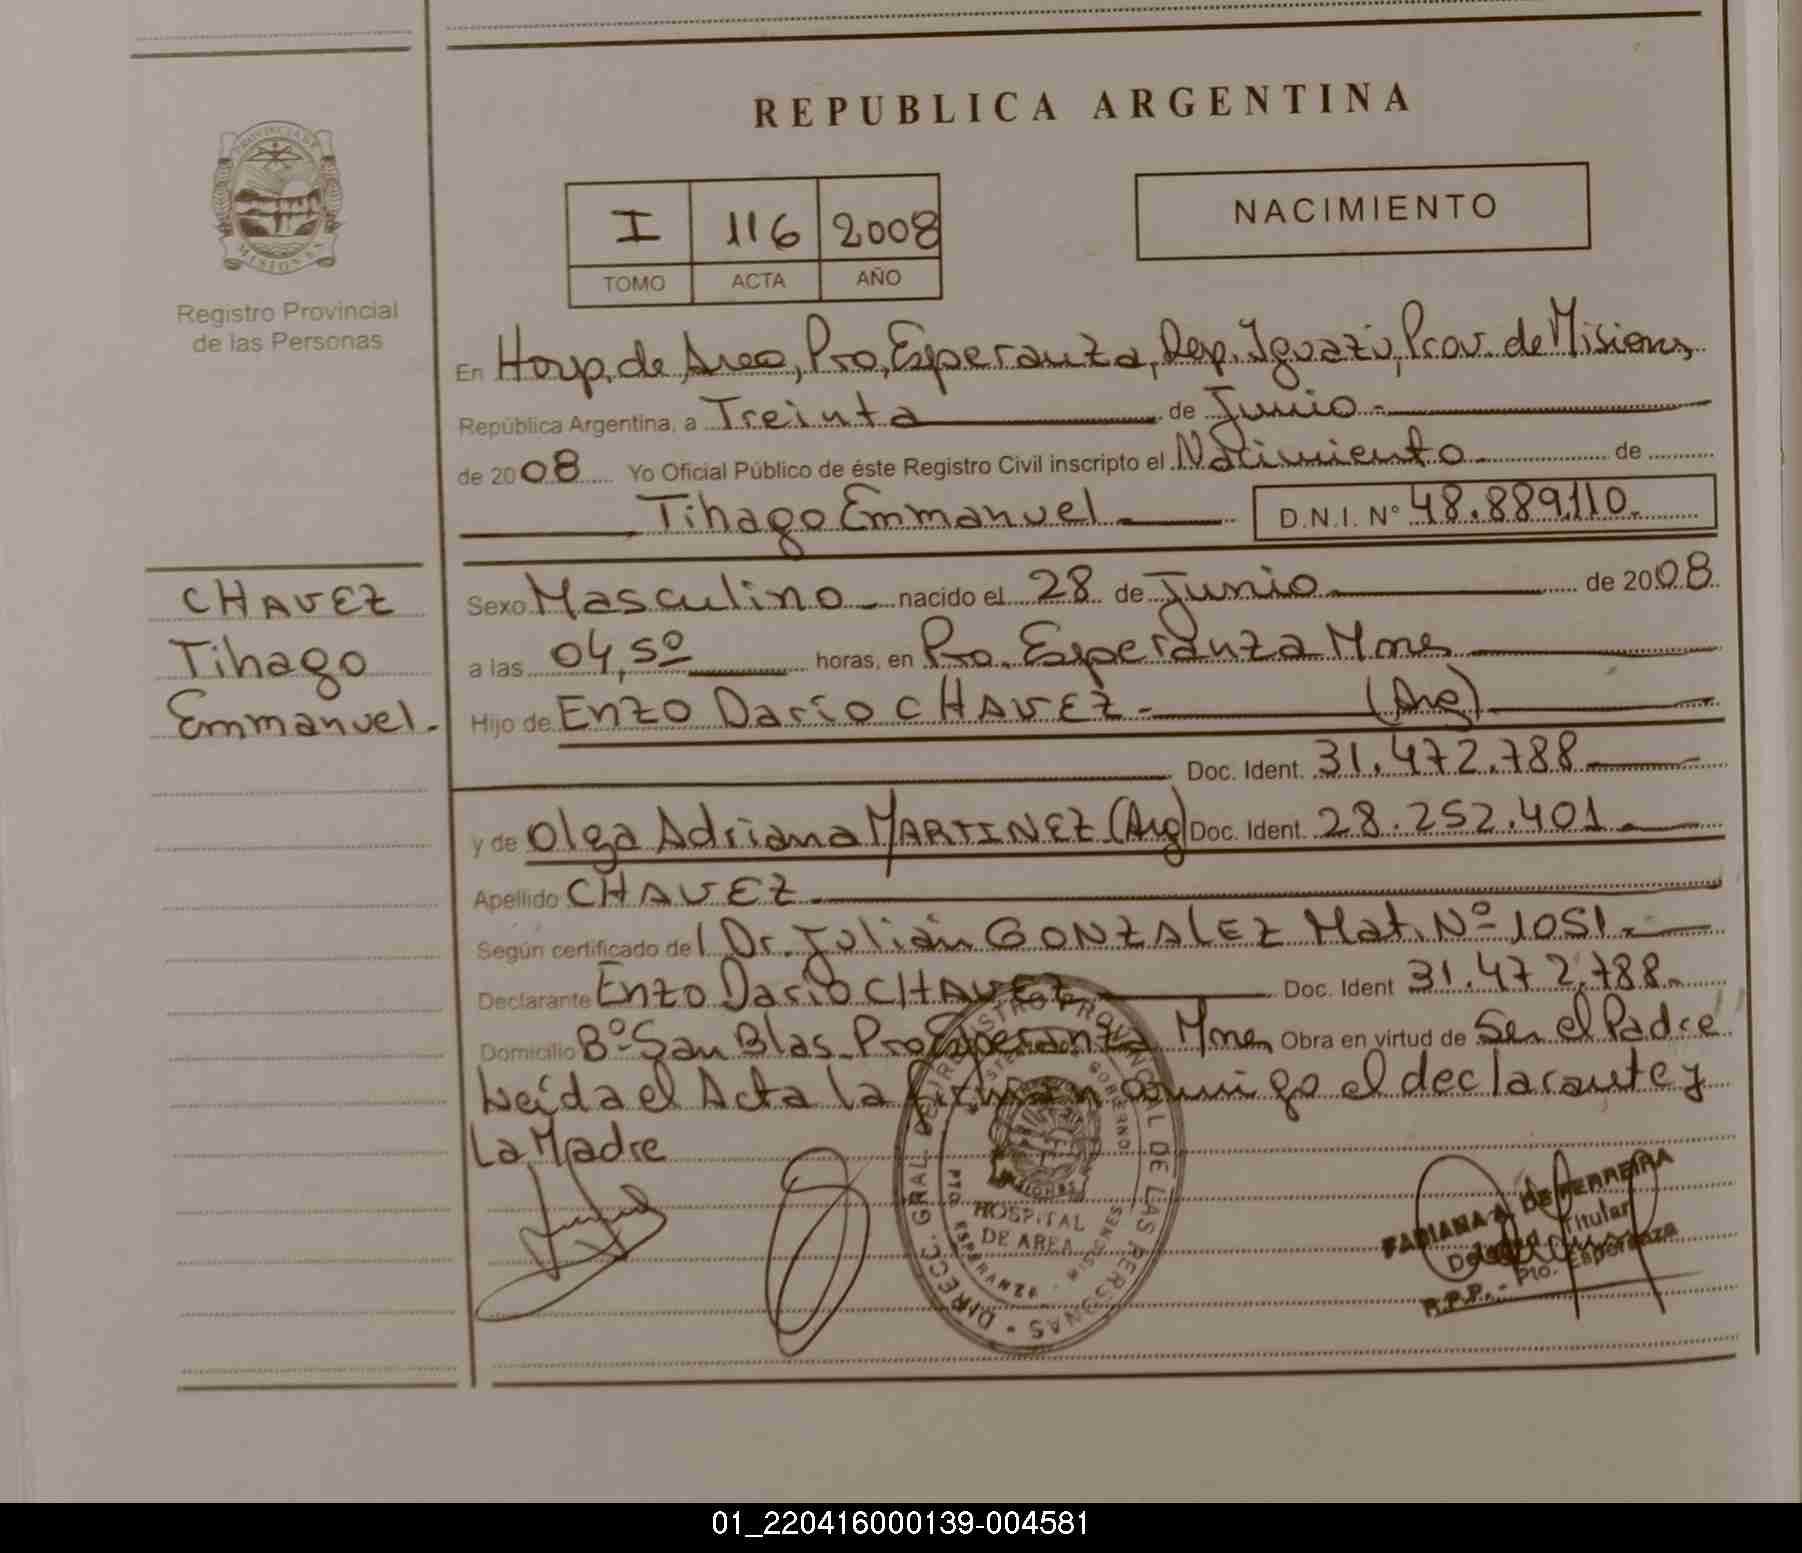 REPUBLICA ARGENTINA
PROVINCIA DE
MISIONES
Registro Provincial
de las Personas
I 116 2008
TOMO ACTA AÑO
NACIMIENTO
En Hosp. de Area, Pto, Esperanza, Dep. Iguazú, Prov. de Misiones
República Argentina, a Treinta de Junio.-
de 2008 Yo Oficial Público de éste Registro Civil inscripto el Nacimiento de
Tihago Emmanuel D.N.I. Nº 48.889.110.
CHAVEZ
Tihago
Emmanuel.-
Sexo Masculino nacido el 28 de Junio de 2008
a las 04,50 horas, en Pto. Esperanza Mnes
Hijo de Enzo Darío CHAVEZ.- (Arg)
Doc. Ident. 31.472.788
y de Olga Adriana MARTINEZ (Arg) Doc. Ident. 28.252.401.
Apellido CHAVEZ.
Según certificado del Dr. Julián GONZALEZ Mat. Nº 1051.-
Declarante Enzo Darío CHAVEZ Doc. Ident 31.472.788.
Domicilio Bº San Blas. Pto Esperanza Mnes Obra en virtud de Ser el Padre
Leída el Acta la firman conmigo el declarante y
La Madre
DIRECC. GRAL. DEL REGISTRO PROVINCIAL DE LAS PERSONAS
GOBIERNO
MISIONES
HOSPITAL
DE AREA
PTO ESPERANZA - MISIONES
FABIANA A. DE FERREIRA
Titular
R.P.P. - Pto. Esperanza
01_220416000139-004581